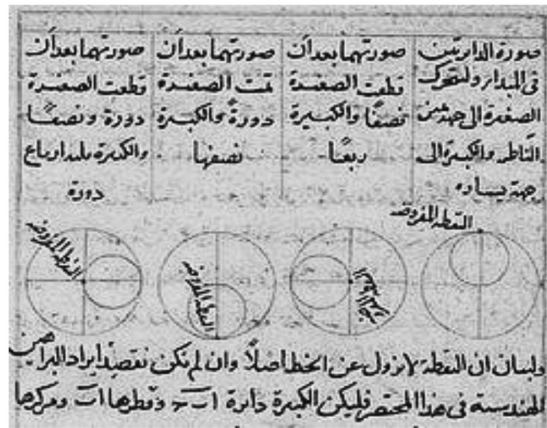 صورة الدائرتين
فى المبدا ولتتحرك
الصغيرة الى جهة يمين
الناظر والكبيرة الى
جهة يساره
صورتهما بعد ان
قطعت الصغيرة
نصفًا والكبيرة
ربعًا
صورتهما بعد ان
تمت الصغيرة
دورةً والكبيرة
نصفها
صورتهما بعد ان
قطعت الصغيرة
دورة ونصفًا
والكبيرة ثلثة ارباع
دورة
النقطة المفروضة
النقطة المفروضة
النقطة المفروضة
ولبيان ان النقطة لا تزول عن الخط اصلاً وان لم نكن نقصد ايراد البراهين
الهندسية فى هذا المختصر فليكن الكبيرة دائرة اب وقطرها اب ومركزها